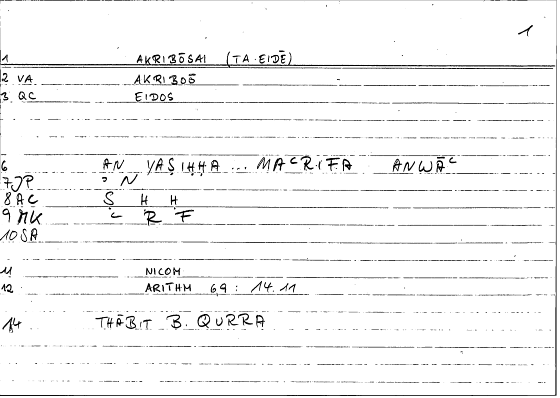 1
1 AKRIBŌSAI (TA EIDĒ)
2 VA AKRIBOŌ
3 QC EIDOS
6 AN YAṢIḤḤA ... MAᶜRIFA ANWĀᶜ
7 JP ʾ N
8 AC Ṣ Ḥ Ḥ
9 MK ᶜ R F
10 SA
11 NICOM
12 ARITHM 69 : 14.11
14 THĀBIT B. QURRA